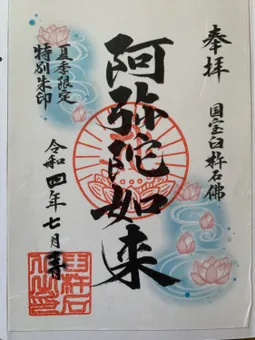 奉拝
国宝臼杵石佛
阿弥陀如来
夏季限定
特別朱印
令和四年七月吉日